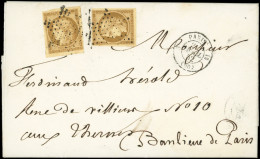 PARIS
Monsieur
Ferdinand Hérold
Rue de Villiers No 10
aux Thernes
Banlieue de Paris